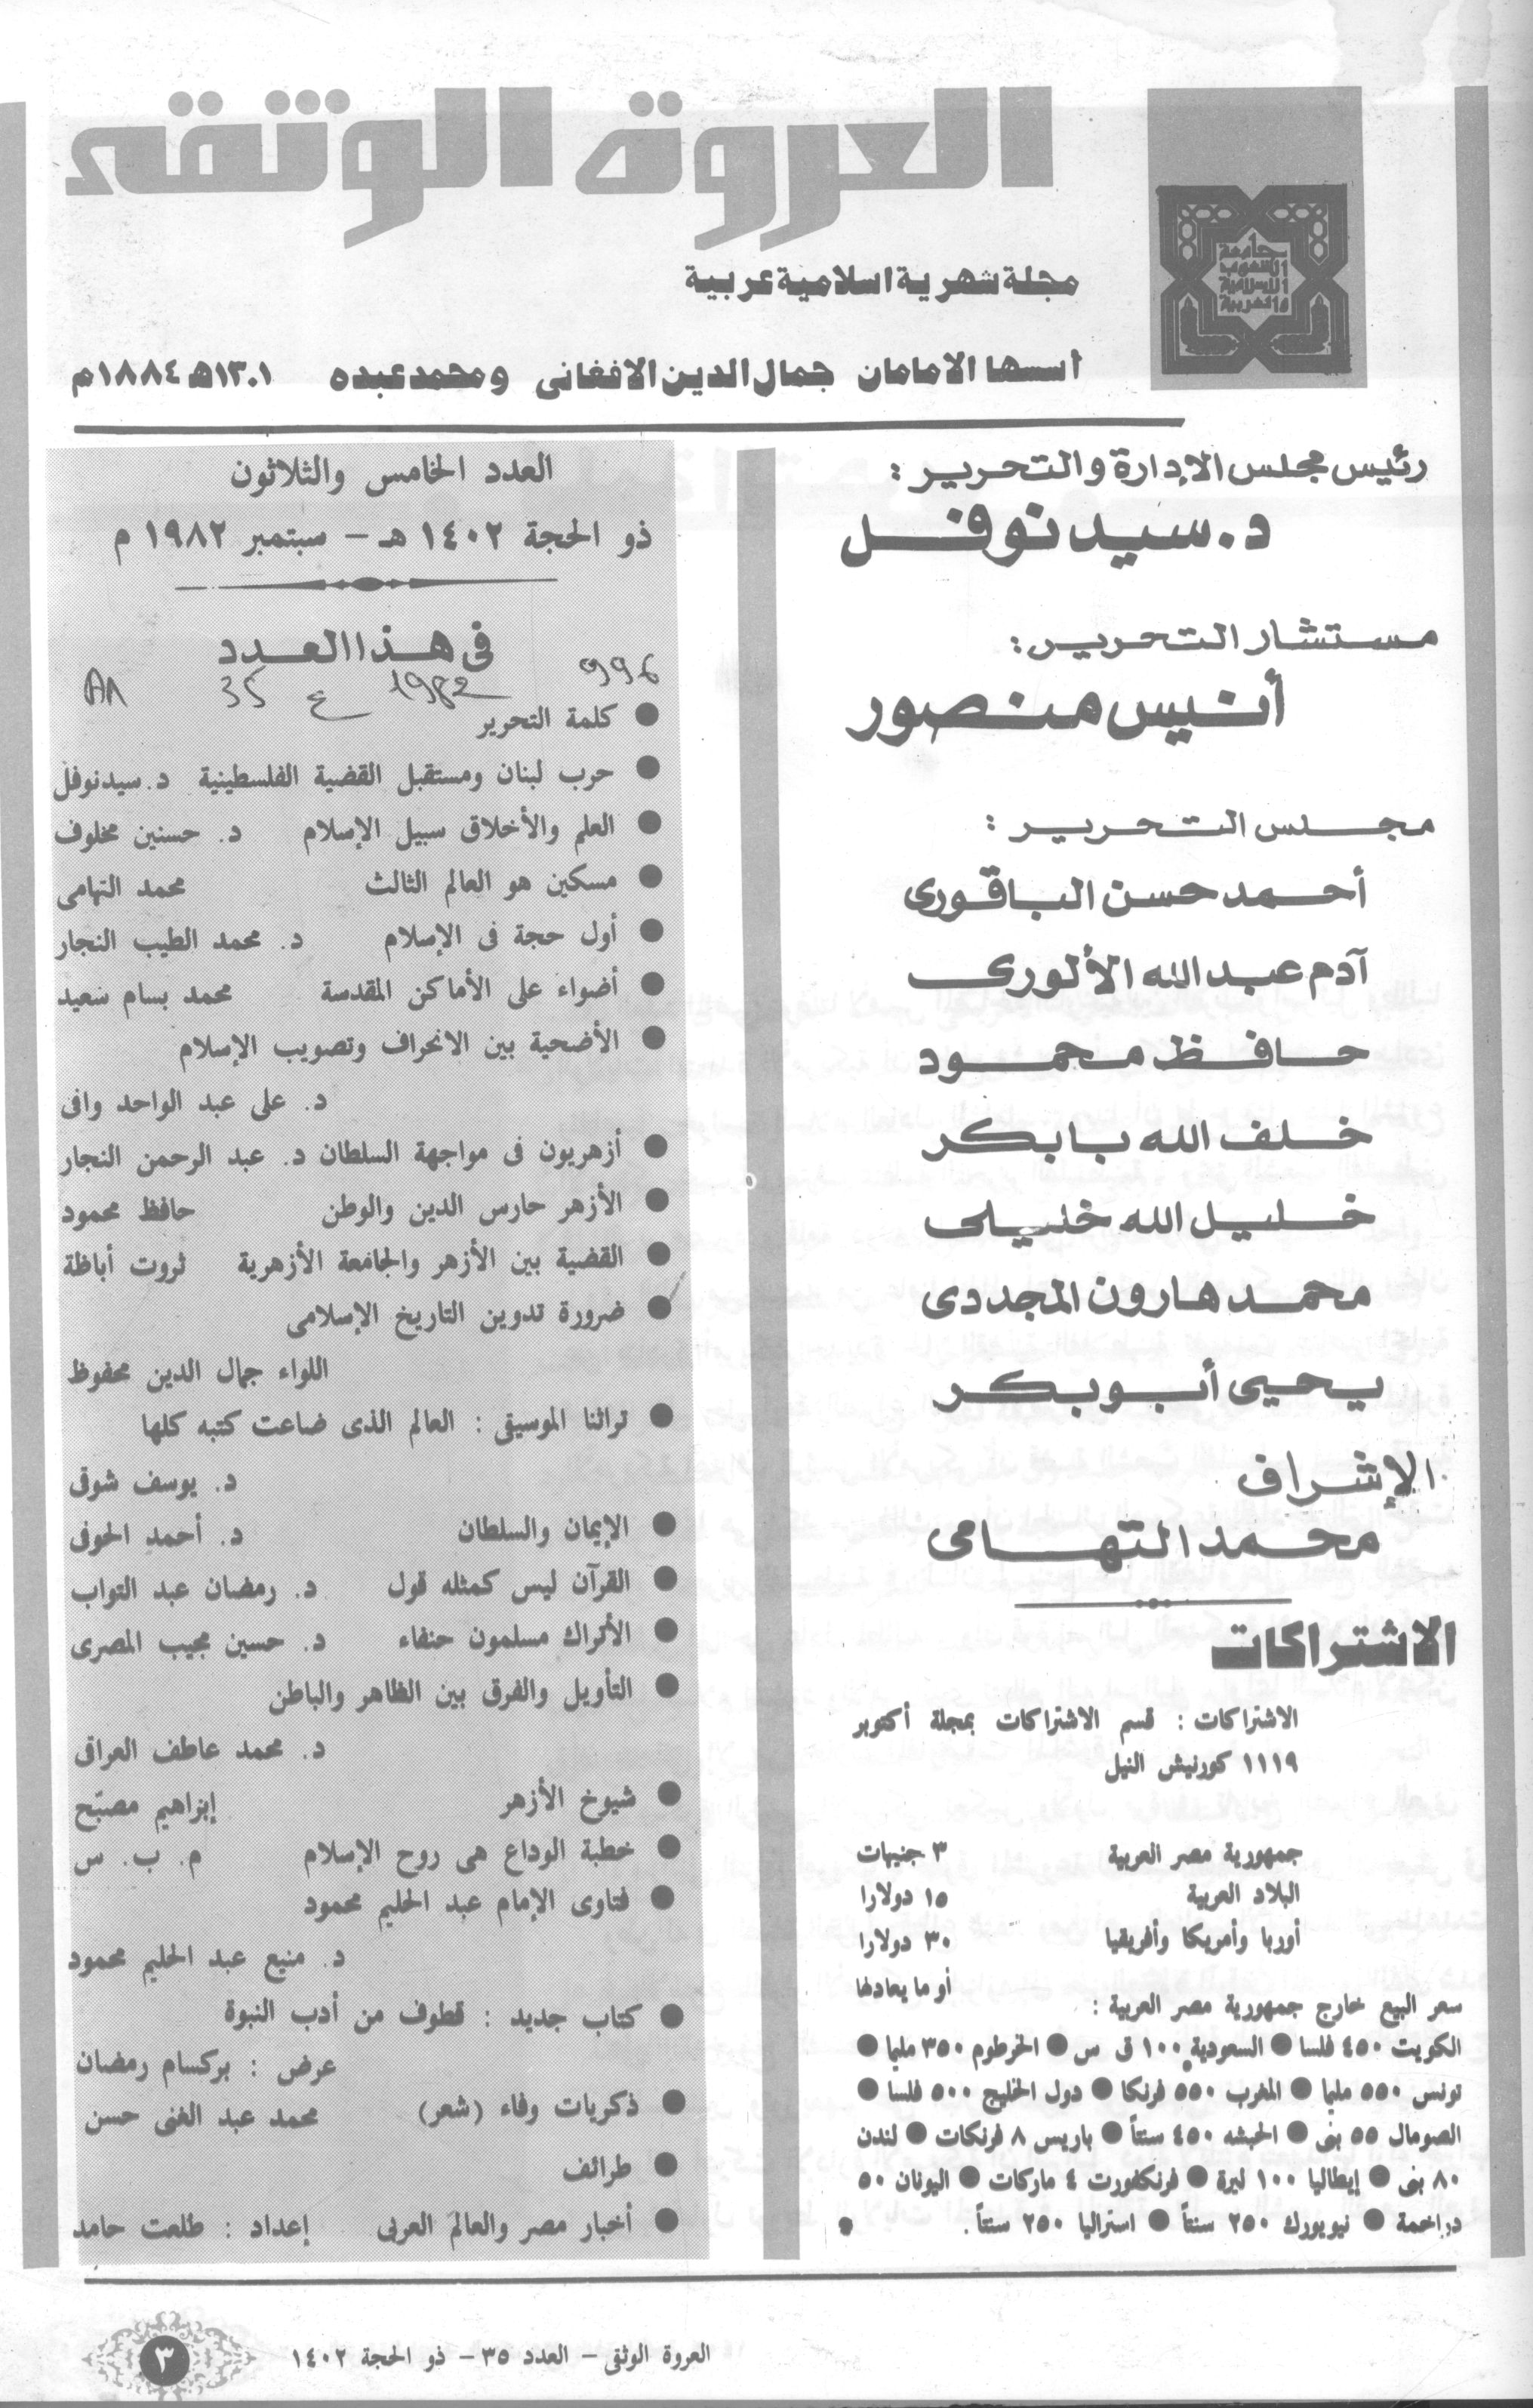 العروة الوثقى
جامعة
الشعوب
الإسلامية
والعربية
مجلة شهرية اسلامية عربية
أسسها الامامان جمال الدين الافغانى ومحمد عبده ١٣٠١هـ ١٨٨٤م
رئيس مجلس الإدارة والتحرير :
د. سيد نوفل
مستشار التحرير :
أنيس منصور
مجلس التحرير :
أحمد حسن الباقورى
آدم عبد الله الألورى
حافظ محمود
خلف الله بابكر
خليل الله خليلى
محمد هارون المجددى
يحيى أبو بكر
الإشراف
محمد التهامى
الاشتراكات
الاشتراكات : قسم الاشتراكات بمجلة أكتوبر
١١١٩ كورنيش النيل
جمهورية مصر العربية ٣ جنيهات
البلاد العربية ١٥ دولارا
أوربا وأمريكا وأفريقيا ٣٠ دولارا
أو ما يعادلها
سعر البيع خارج جمهورية مصر العربية :
الكويت ٤٥٠ فلسا ● السعودية ١٠٠ ق س ● الخرطوم ٣٥٠ مليا ●
تونس ٥٥٠ مليا ● المغرب ٥٥٠ فرنكا ● دول الخليج ٥٠٠ فلسا ●
الصومال ٥٥ بنى ● الحبشه ٤٥٠ سنتاً ● باريس ٨ فرنكات ● لندن
٨٠ بنى ● إيطاليا ١٠٠ ليرة ● فرنكفورت ٤ ماركات ● اليونان ٥٠
دراخمة ● نيويورك ٢٥٠ سنتاً ● استراليا ٢٥٠ سنتاً .
العدد الخامس والثلاثون
ذو الحجة ١٤٠٢ هـ – سبتمبر ١٩٨٢ م
فى هذا العدد
996 1982 ع 35
● كلمة التحرير
● حرب لبنان ومستقبل القضية الفلسطينية د. سيد نوفل
● العلم والأخلاق سبيل الإسلام د. حسنين مخلوف
● مسكين هو العالم الثالث محمد التهامى
● أول حجة فى الإسلام د. محمد الطيب النجار
● أضواء على الأماكن المقدسة محمد بسام سعيد
● الأضحية بين الانحراف وتصويب الإسلام
د. على عبد الواحد وافى
● أزهريون فى مواجهة السلطان د. عبد الرحمن النجار
● الأزهر حارس الدين والوطن حافظ محمود
● القضية بين الأزهر والجامعة الأزهرية ثروت أباظة
● ضرورة تدوين التاريخ الإسلامى
اللواء جمال الدين محفوظ
● تراثنا الموسيقى : العالم الذى ضاعت كتبه كلها
د. يوسف شوقى
● الإيمان والسلطان د. أحمد الحوفى
● القرآن ليس كمثله قول د. رمضان عبد التواب
● الأتراك مسلمون حنفاء د. حسين مجيب المصرى
● التأويل والفرق بين الظاهر والباطن
د. محمد عاطف العراقى
● شيوخ الأزهر إبراهيم مصبّح
● خطبة الوداع هى روح الإسلام م. ب. س
● فتاوى الإمام عبد الحليم محمود
د. منيع عبد الحليم محمود
● كتاب جديد : قطوف من أدب النبوة
عرض : بركسام رمضان
● ذكريات وفاء (شعر) محمد عبد الغنى حسن
● طرائف
● أخبار مصر والعالم العربى إعداد : طلعت حامد
العروة الوثقى – العدد ٣٥ – ذو الحجة ١٤٠٢
٣